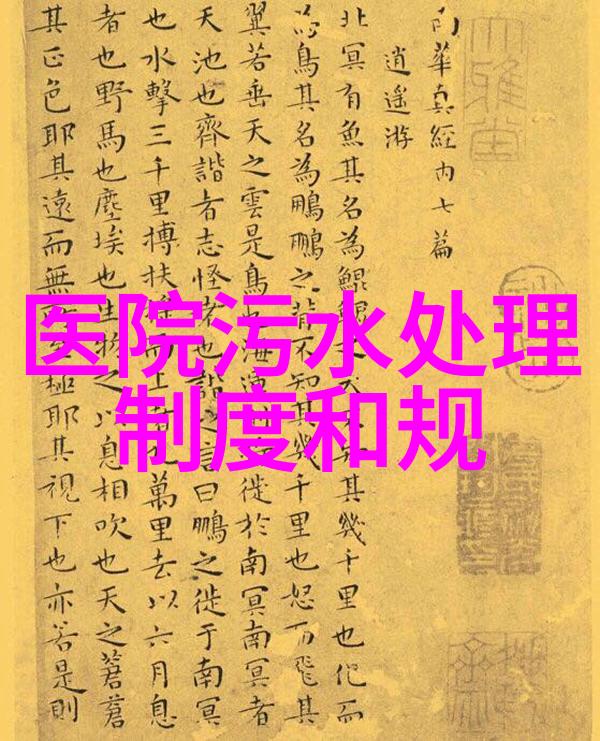 医院污水处理
制度和规
南華真經内七篇
逍遥游
北冥有魚其名為鯤鯤之大不知其幾千里也化而
為鳥其名為鵬鵬之背不知其幾千里也怒而飛其
翼若垂天之雲是鳥也海運徙於南冥南冥者
天池也齊諧者志怪者也諧之言曰鵬之徙于南冥
也水擊三千里搏扶而上者九萬里去以六月息
者也野馬也塵埃也生物之以息相吹也天之蒼蒼
其正色耶其遠而無極耶其視下也亦若是則